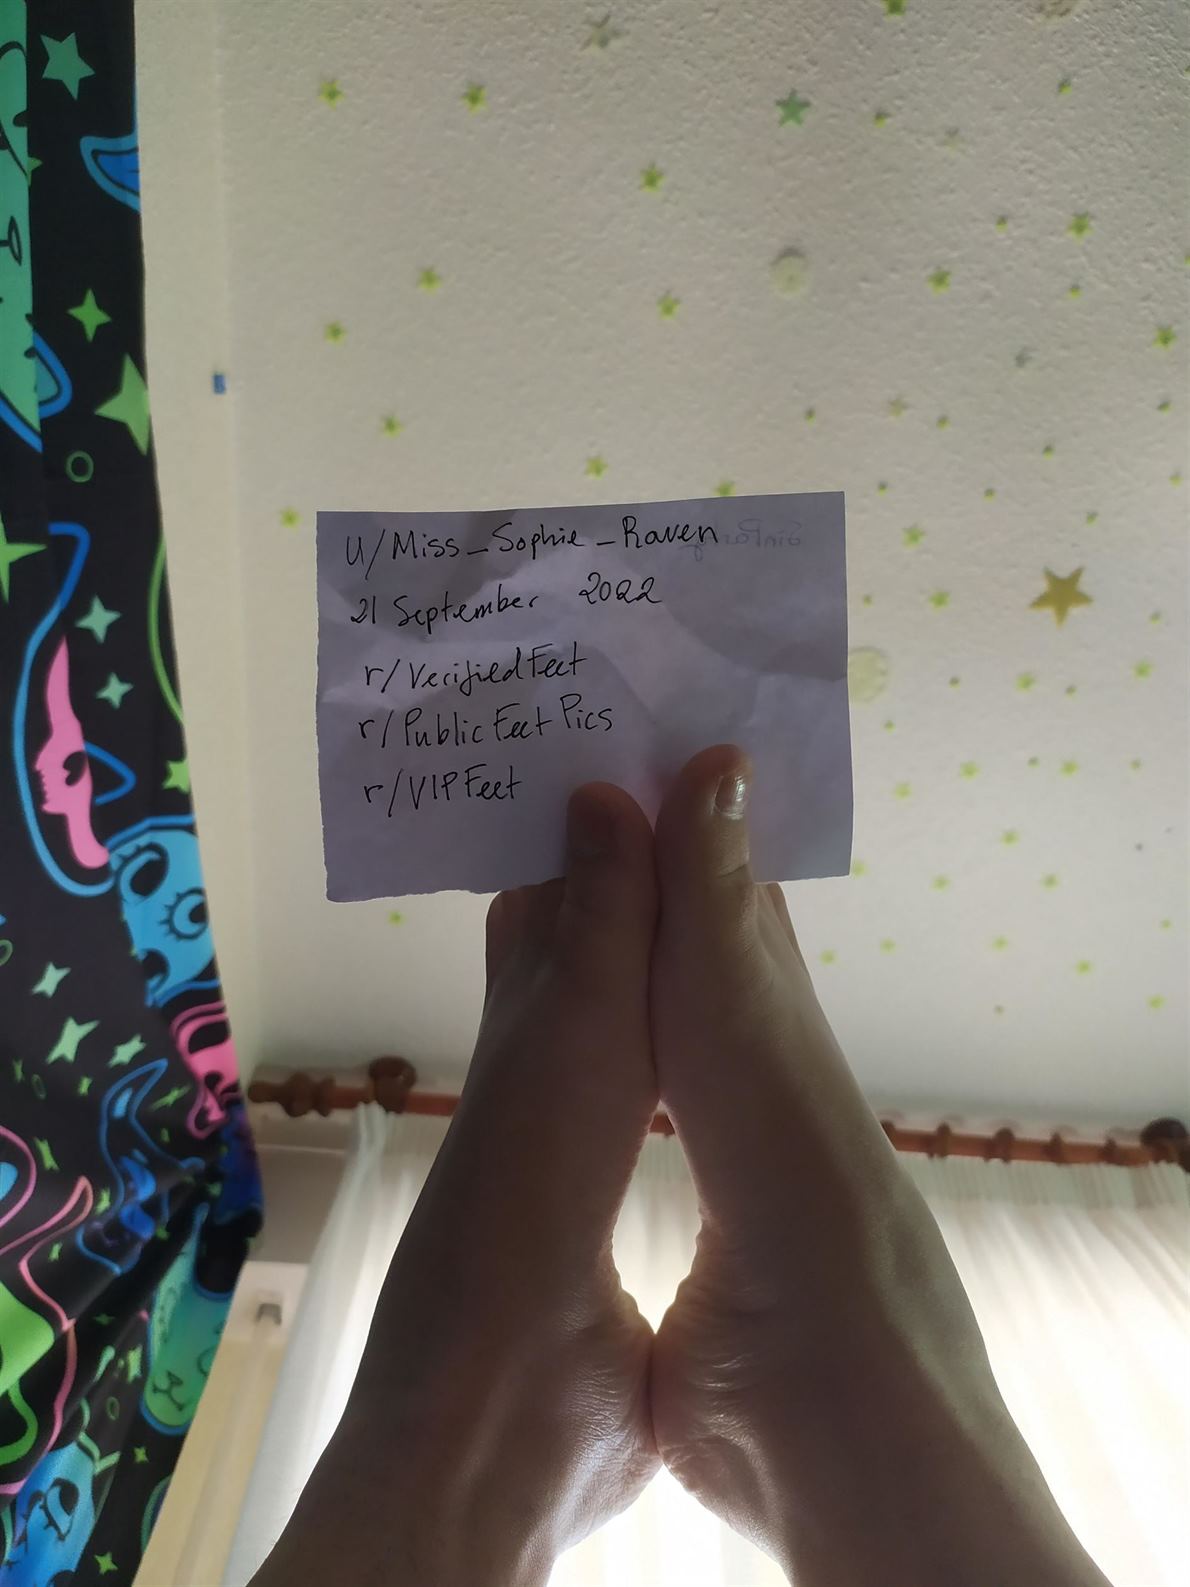 U/Miss_Sophie_Raven
21 September 2022
r/VerifiedFeet
r/PublicFeetPics
r/VIPFeet